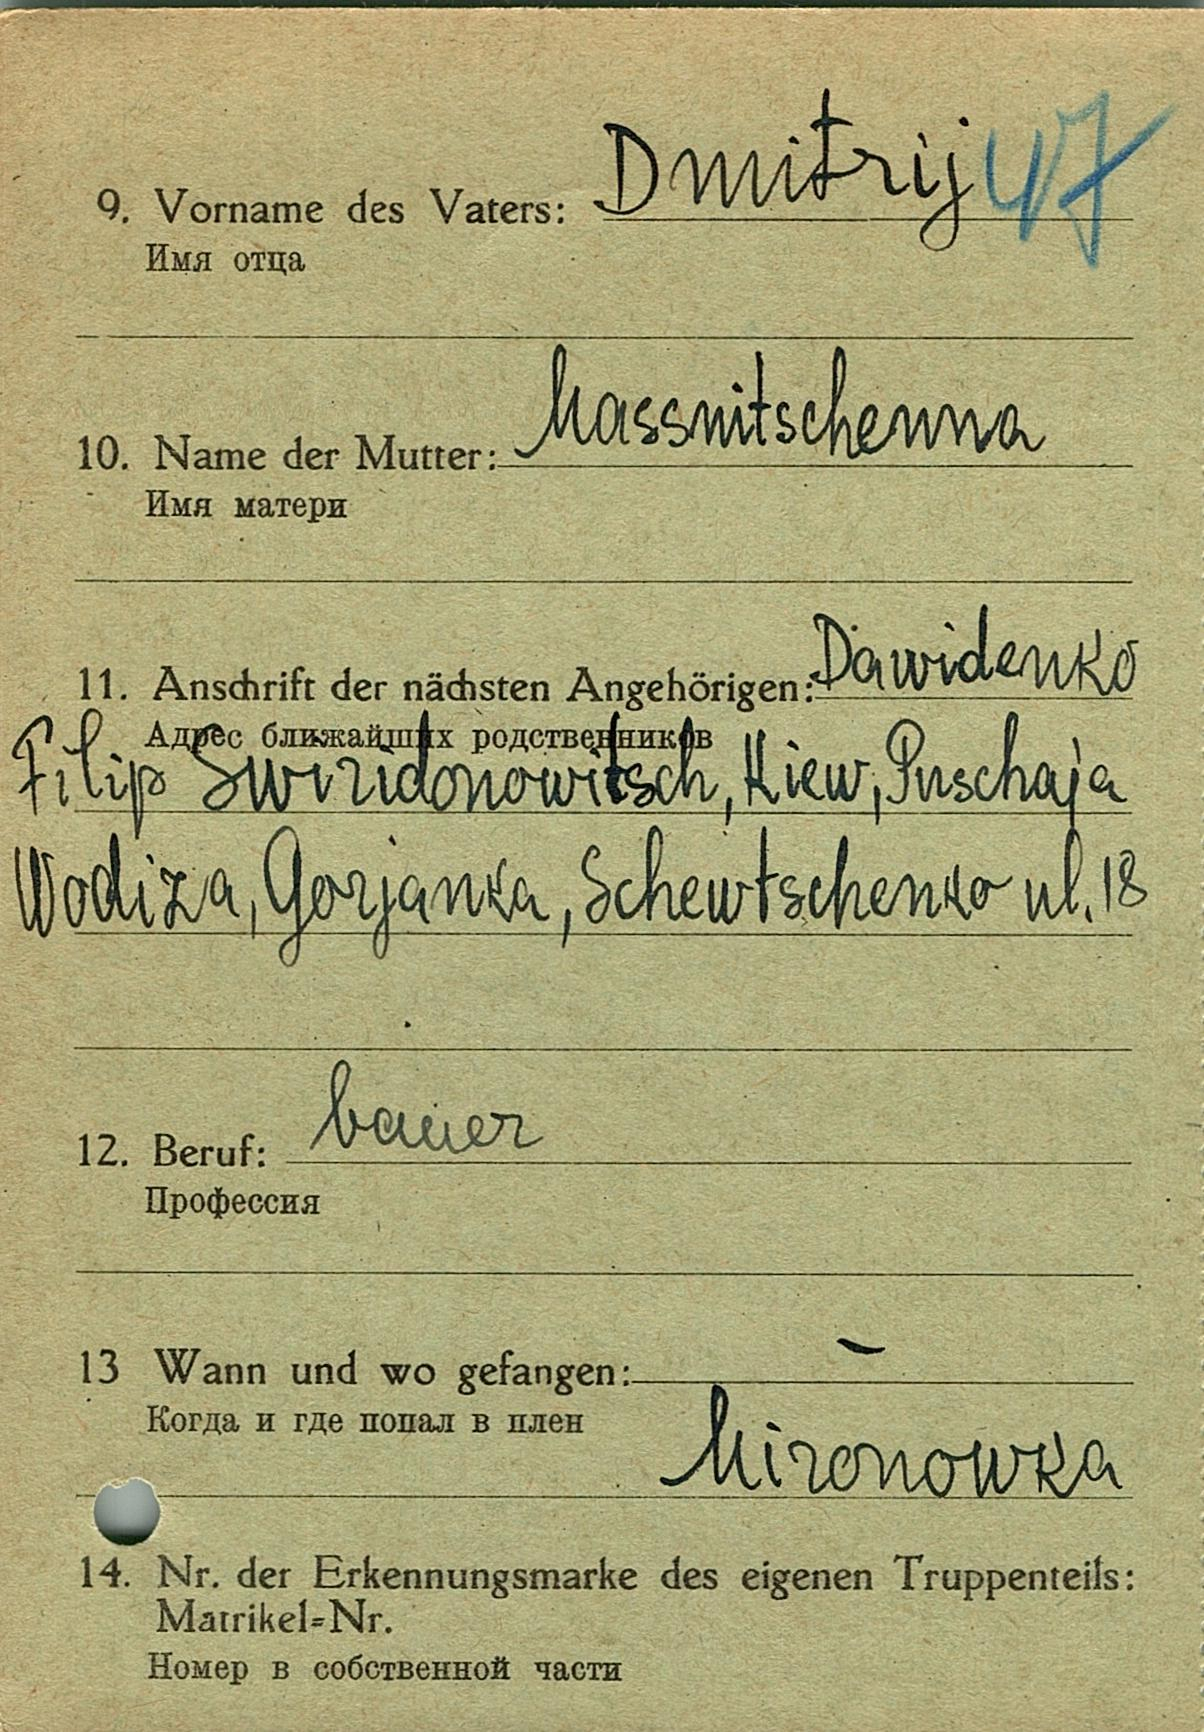 9. Vorname des Vaters: Dmitrij 47
Имя отца
10. Name der Mutter: Massnitschenna
Имя матери
11. Anschrift der nächsten Angehörigen: Dawidenko
Адрес ближайших родственников
Filip Swiridonowitsch, Kiew, Puschaja
Wodiza, Gorjanka, Schewtschenko ul. 18
12. Beruf: bauer
Профессия
13 Wann und wo gefangen: -
Когда и где попал в плен
Mironowka
14. Nr. der Erkennungsmarke des eigenen Truppenteils:
Matrikel=Nr.
Номер в собственной части